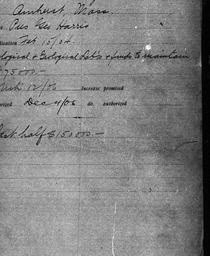 Amherst, Mass.
Pres Geo Harris
Feb 15/04.
Biological & Geological Lab's & funds to maintain
75000—
12/00 Increase promised
Dec 4/05 do. authorized
last half $150000—